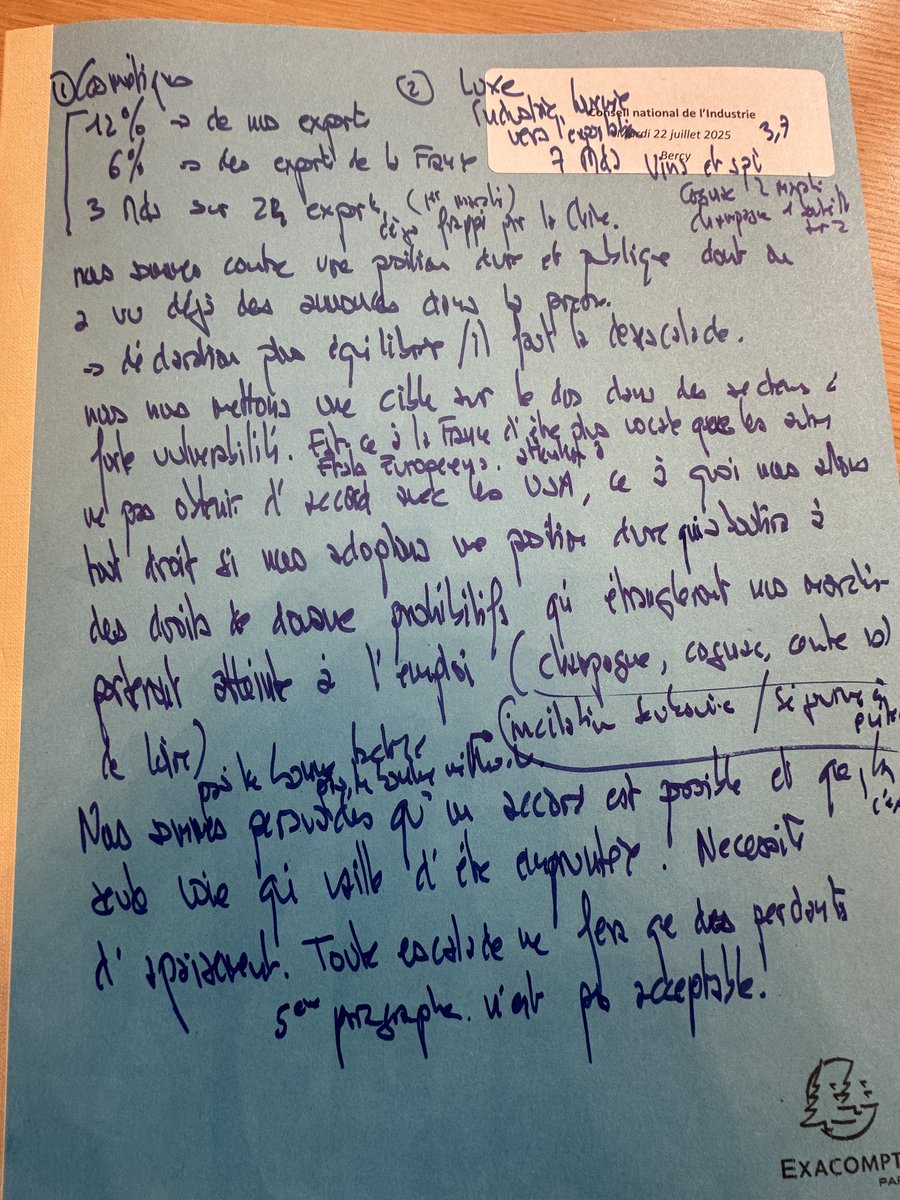 ① Cosmétiques
12% → de nos export
6% → des export de la France
3 Mds sur 22 export, (1er marché)
déjà frappé par la Chine.
② Luxe
Industrie, tournée
vers l'exportation
7 Mds
Conseil national de l'Industrie
Mardi 22 juillet 2025
Bercy
3,7
Vins et spi
Cognac 1 2 marché
Champagne 1 bouteille
sur 2
nous sommes contre une position dure et publique dont on
a vu déjà des annonces dans la presse.
→ déclaration plus équilibrée / il faut la désescalade.
nous nous mettons une cible sur le dos dans des secteurs à
forte vulnérabilité. Est-ce à la France d'être plus vocale que les autres
Etats Européens. attention à
ne pas obtenir d'accord avec les USA, ce à quoi nous allons
tout droit si nous adoptons une position dure qui aboutira à
des droits de douane prohibitifs qui étrangleront nos
porteront atteinte à l'emploi (champagne, cognac,
de Loire)
(incitation
pas la bonne
pas la bonne méthode
Nous sommes persuadés qu'un accord est possible et que, la
seule voie qui vaille d'être empruntée. Necessité
d'apaisement. Toute escalade ne fera que des perdants
5ème paragraphe. n'est pas acceptable!
EXACOMPT
PAR